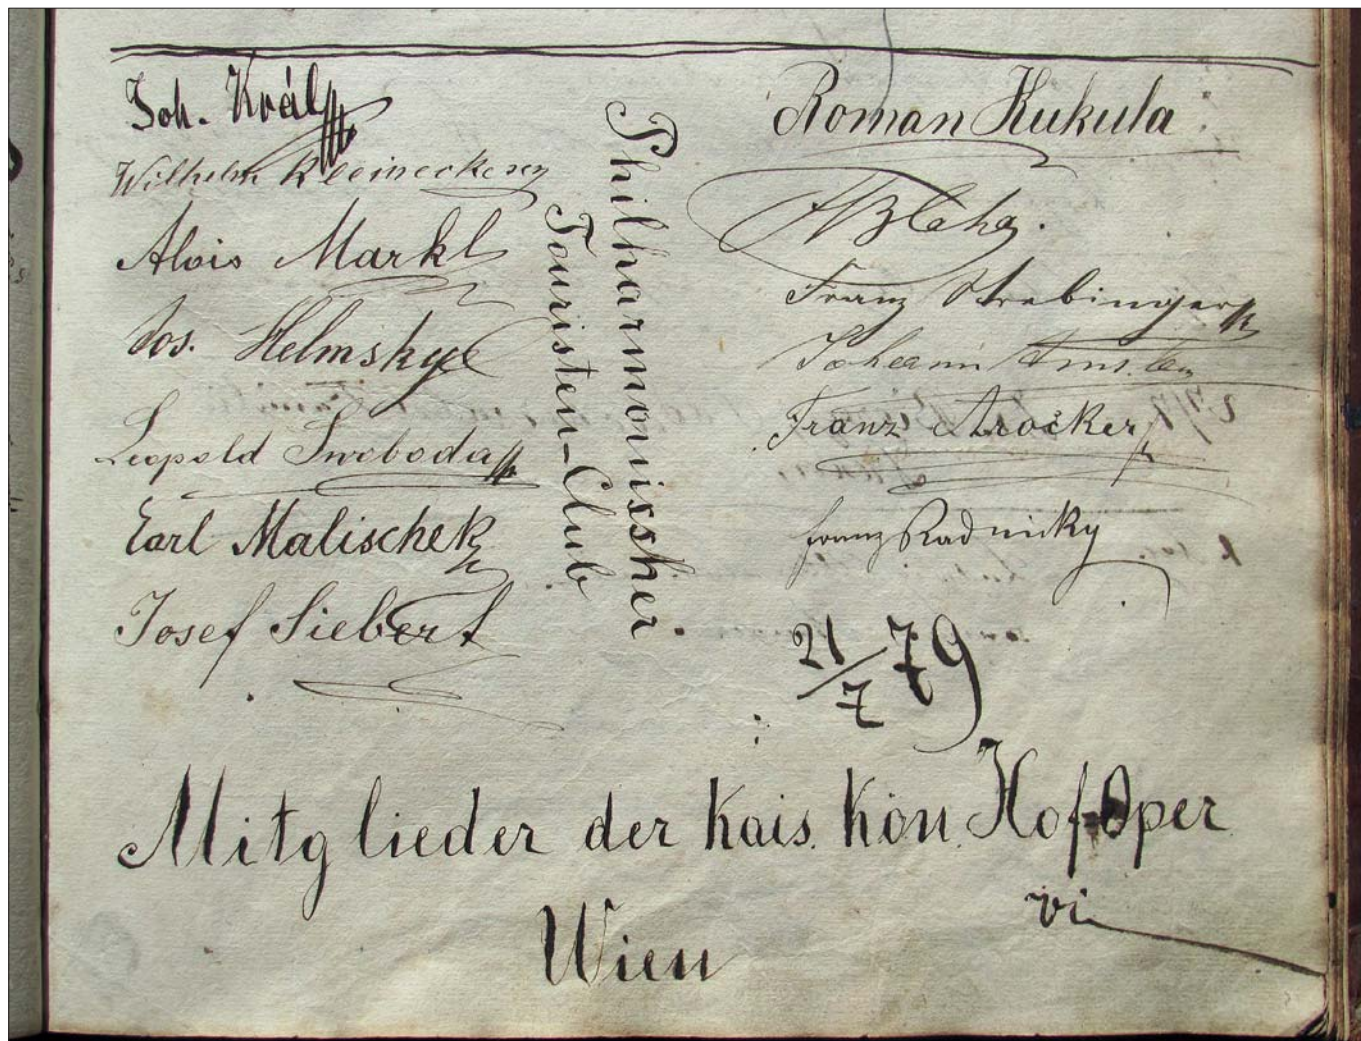 Joh. Král
Wilhelm Kleinecke sen
Alois Markl
Jos. Helmsky
Leopold Swoboda
Carl Malischek
Josef Siebert
Philharmonischer
Touristen-Club
Roman Kukula
Blaha.
Franz Strebinger
Johann
Franz
Franz Radnicky
21/7 79
Mitglieder der kais. kön. Hof-Oper
Wien